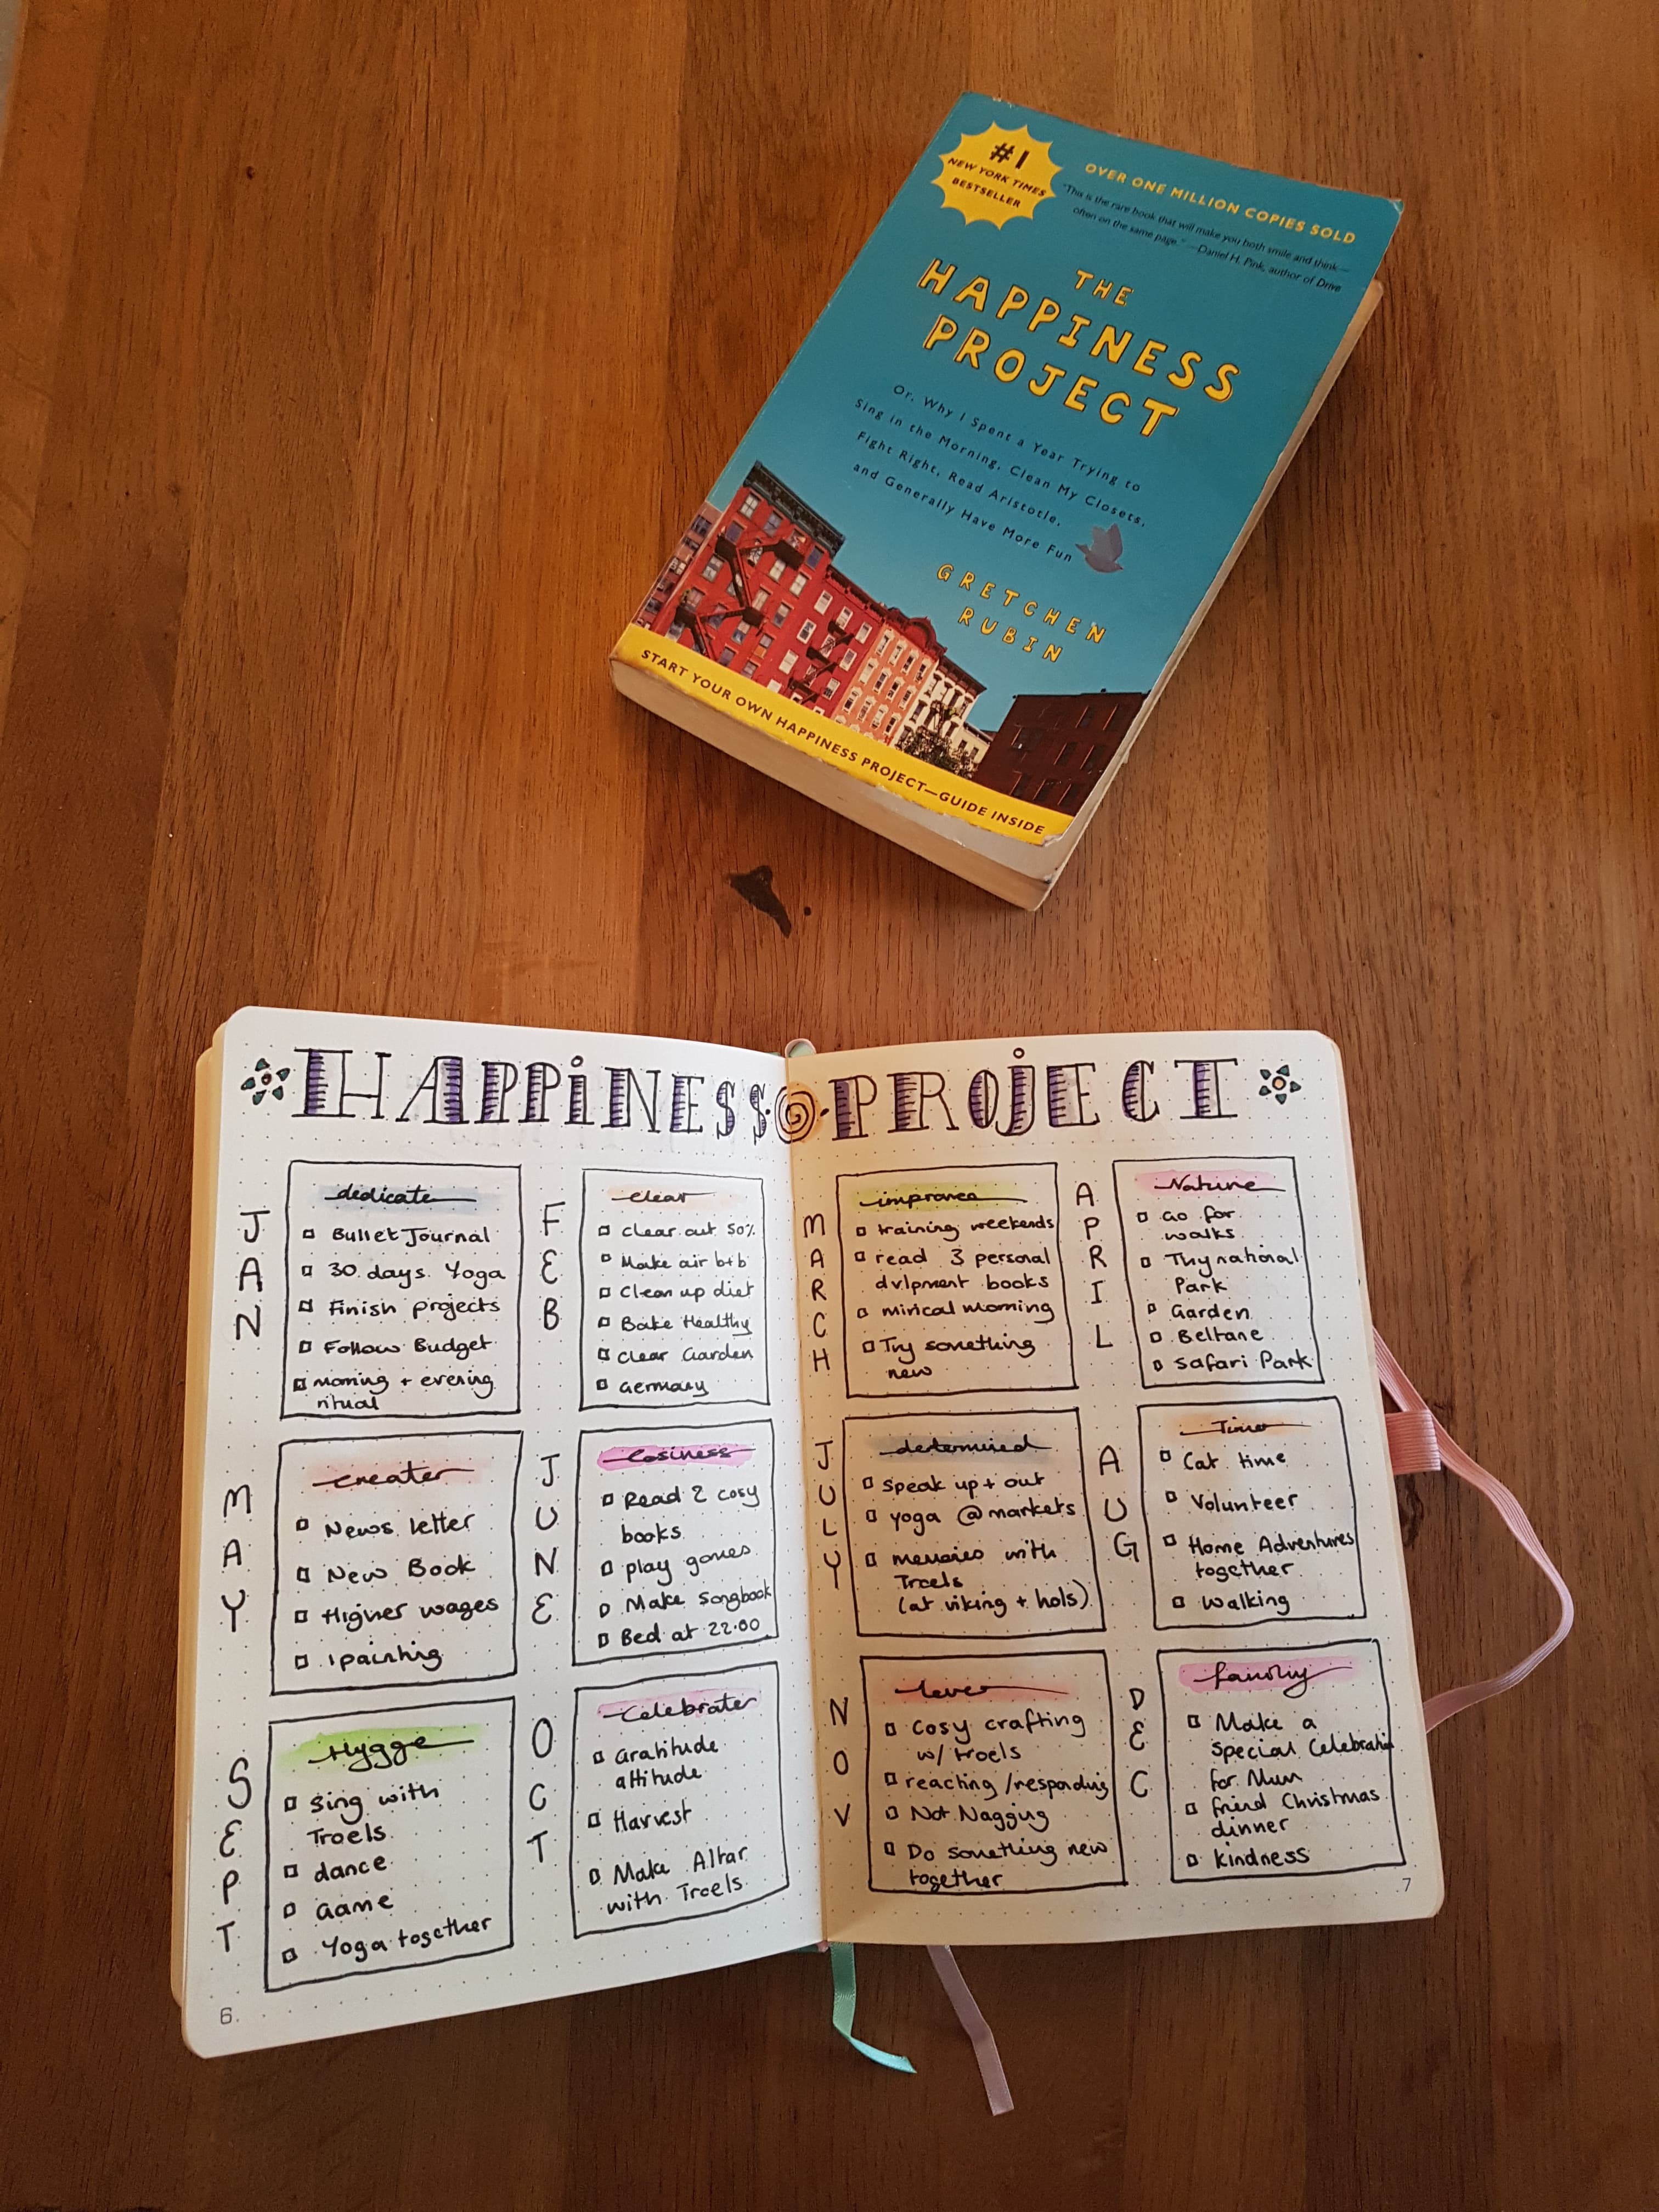 #1
NEW YORK TIMES
BESTSELLER
OVER ONE MILLION COPIES SOLD
"This is the rare book that will make you both smile and think—
often on the same page." —Daniel H. Pink, author of Drive
THE
HAPPINESS
PROJECT
Or, Why I Spent a Year Trying to
Sing in the Morning, Clean My Closets,
Fight Right, Read Aristotle,
and Generally Have More Fun
GRETCHEN
RUBIN
START YOUR OWN HAPPINESS PROJECT—GUIDE INSIDE
HAPPINESS PROJECT
JAN
dedicate
Bullet Journal
30 days Yoga
Finish projects
Follow Budget
morning + evening
ritual
FEB
clear
Clear out 50%
Make air b+b
Clean up diet
Bake Healthy
Clear Garden
Germany
MAY
creater
News letter
New Book
Higher wages
1 painting
JUNE
Cosiness
Read 2 cosy
books
play games
Make Songbook
Bed at 22:00
SEPT
Hygge
Sing with
Troels
dance
Game
Yoga together
OCT
Celebrater
Gratitude
attitude
Harvest
Make Altar
with Troels
6.
MARCH
improver
training weekends
read 3 personal
dvlpment books
mirical morning
Try something
new
APRIL
Nature
Go for
walks
Thy national
Park
Garden
Beltane
Safari Park
JULY
determined
speak up + out
yoga @ markets
memories with
Troels
(at viking + hols)
AUG
Time
Cat time
Volunteer
Home Adventures
together
walking
NOV
lover
Cosy crafting
w/ troels
reacting/responding
Not Nagging
Do something new
together
DEC
family
Make a
special Celebration
for Mum
friend Christmas
dinner
kindness
7